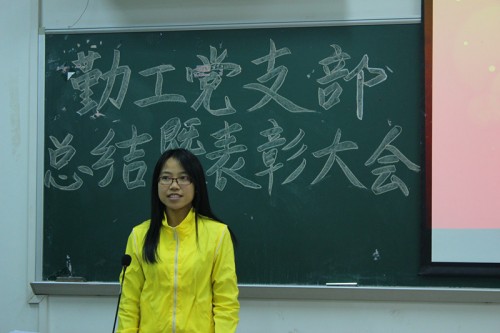 勤工党支部
总结暨表彰大会